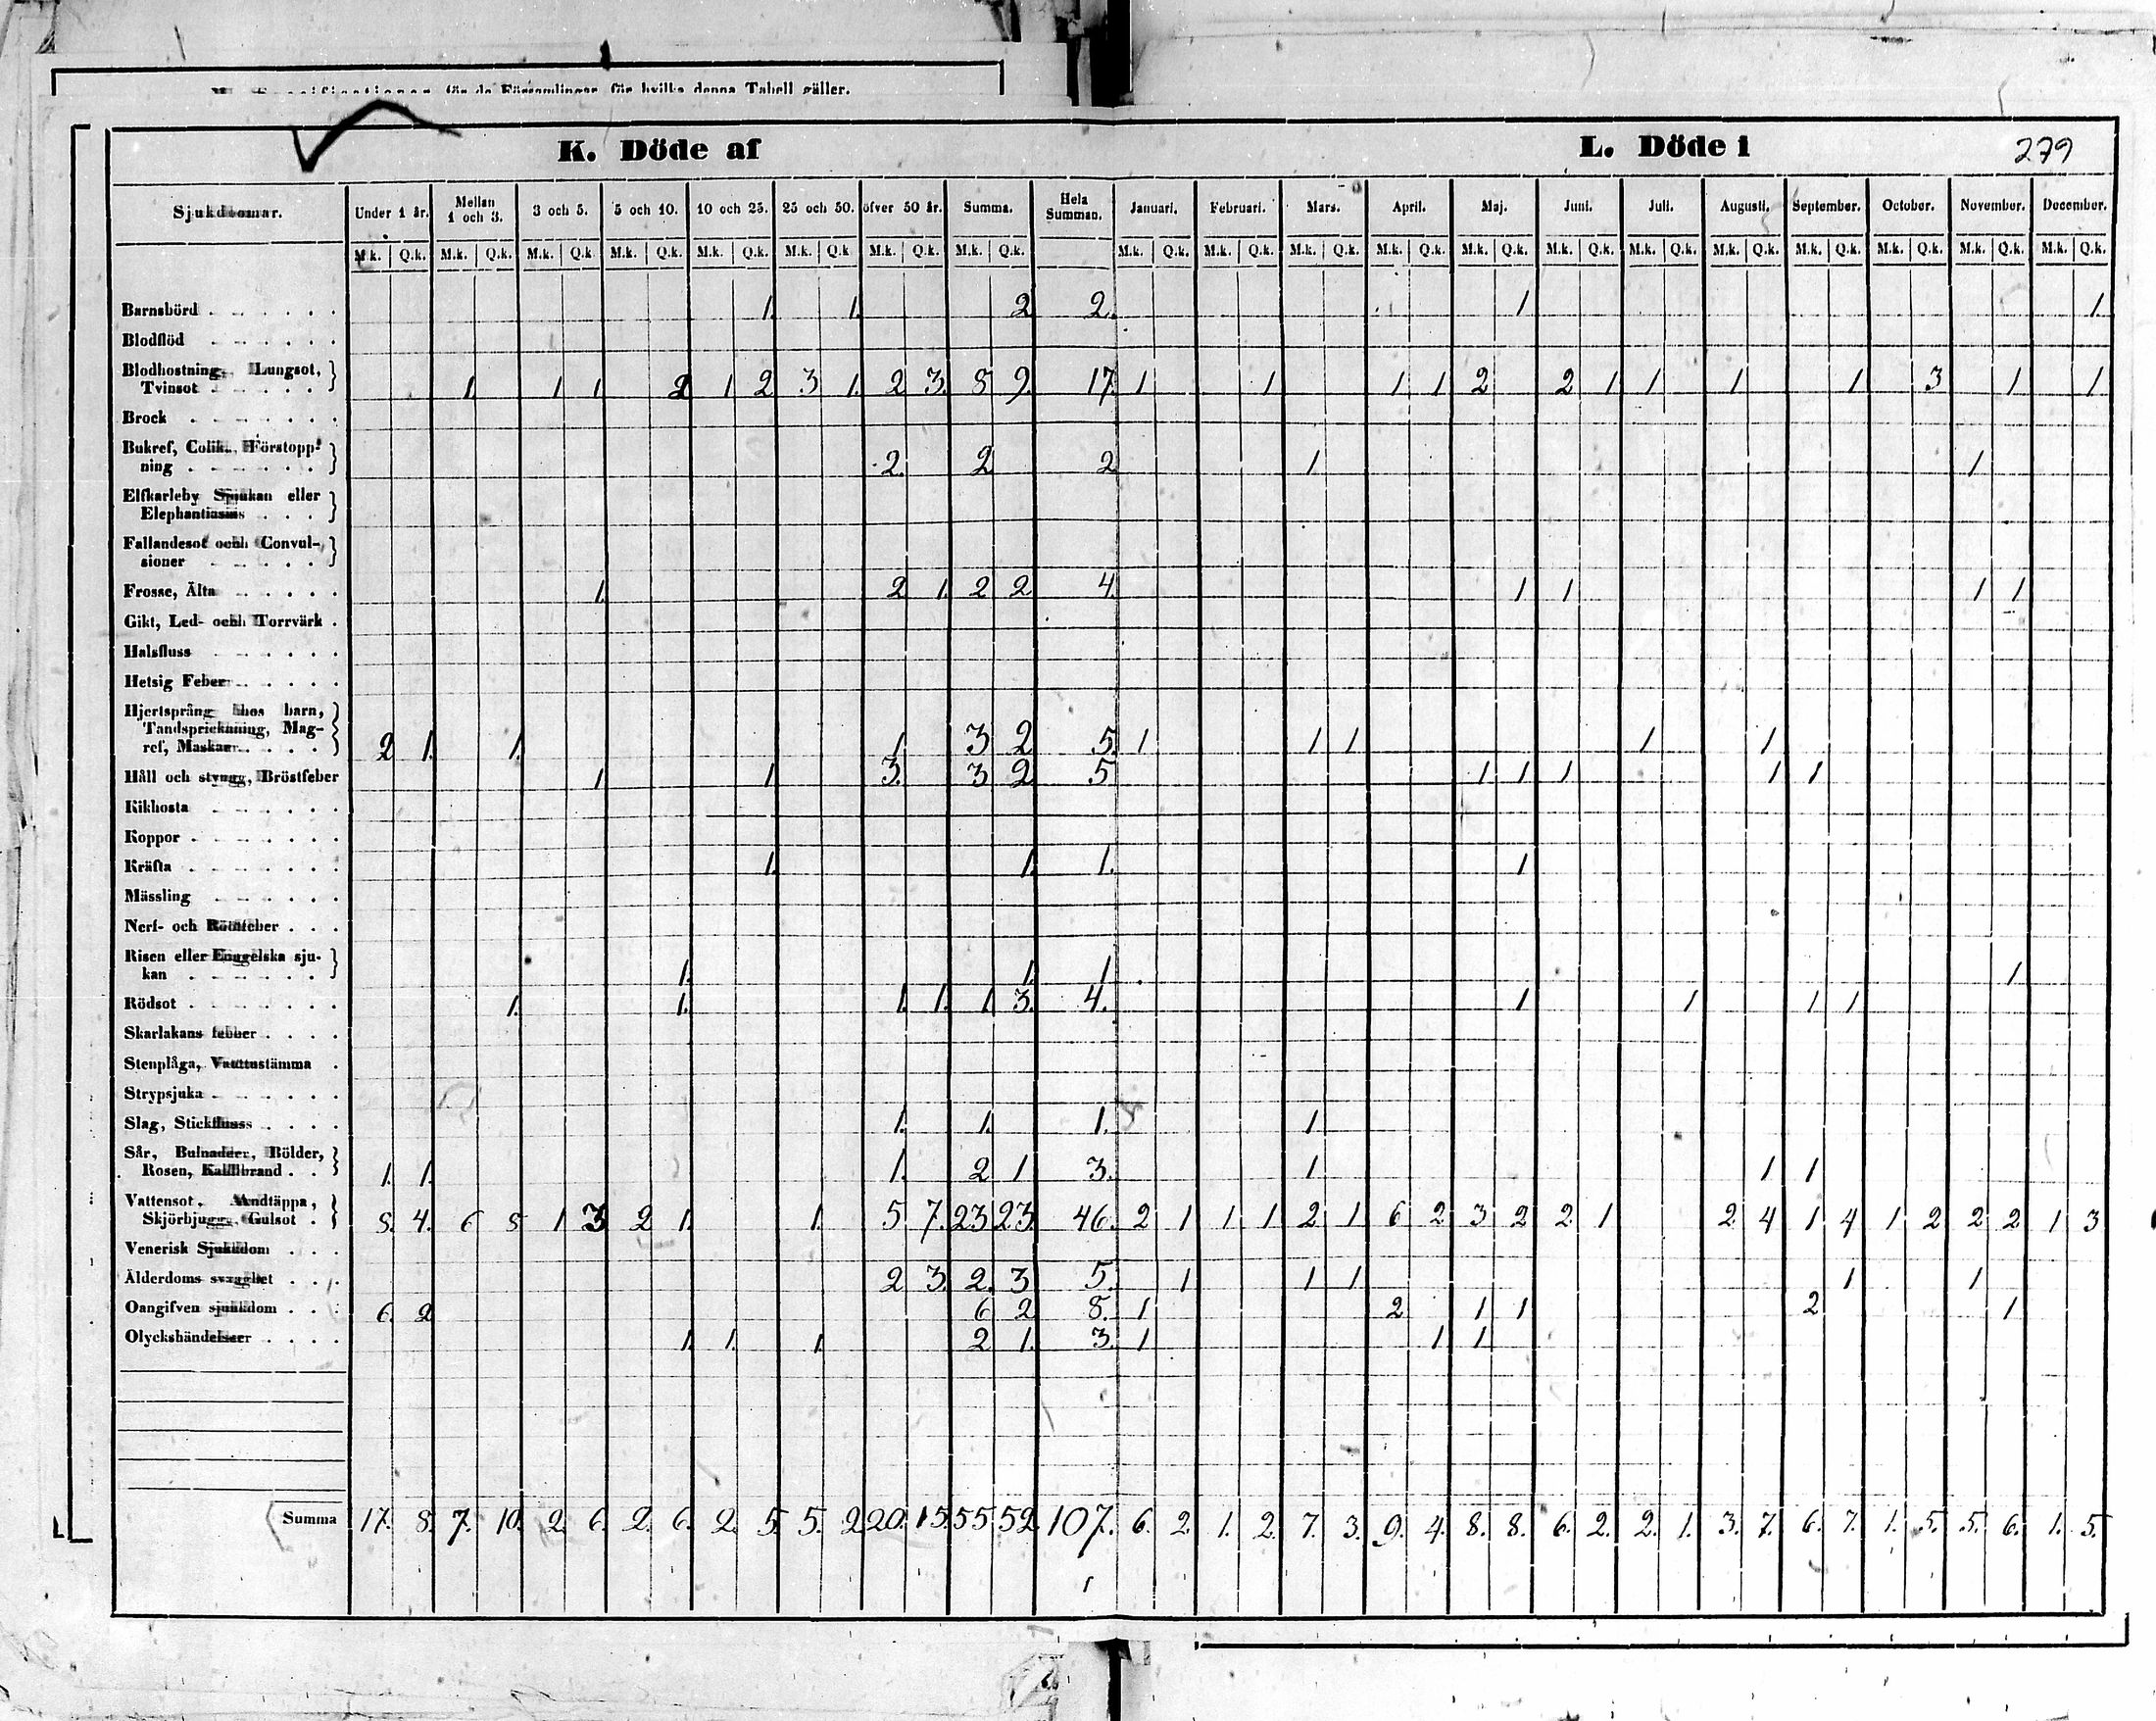 för de Församlingar för hvilka denna Tabell gäller.
K. Döde af L. Döde i 279
Sjukdomar. Under 1 år. Mellan 1 och 3. 3 och 5. 5 och 10. 10 och 25. 25 och 50. öfver 50 år. Summa. Hela Summan. Januari. Februari. Mars. April. Maj. Juni. Juli. Augusti. September. October. November. December.
M.k. Q.k. M.k. Q.k. M.k. Q.k. M.k. Q.k. M.k. Q.k. M.k. Q.k. M.k. Q.k. M.k. Q.k. M.k. Q.k. M.k. Q.k. M.k. Q.k. M.k. Q.k. M.k. Q.k. M.k. Q.k. M.k. Q.k. M.k. Q.k. M.k. Q.k. M.k. Q.k. M.k. Q.k. M.k. Q.k.
Barnsbörd 1. 1. 2 2. 1 1.
Blodflöd
Blodhostning, Lungsot,
Tvinsot 1. 1 1 2 1 2 3 1. 2 3. 8 9. 17. 1 1 1 1 2 2 1 1 1 1 3 1 1
Brock
Bukref, Colik, Förstopp-
ning 2. 2 2 1 1
Elfkarleby Sjukan eller
Elephantiasis
Fallandesot och Convul-
sioner
Frosse, Älta 1. 2 1. 2 2 4 1 1 1 1
Gikt, Led- och Torrvärk
Halsfluss
Hetsig Feber
Hjertsprång hos barn,
Tandsprickning, Mag-
ref, Maskar 2 1. 1. 1. 3 2 5. 1 1 1 1 1
Håll och stygg, Bröstfeber 1 1. 3. 3 2 5. 1 1 1 1 1
Kikhosta
Koppor
Kräfta 1. 1. 1. 1
Mässling
Nerf- och Rötfeber
Risen eller Engelska sju-
kan 1. 1. 1 1
Rödsot 1. 1. 1. 1. 1 3. 4. 1 1 1 1
Skarlakans feber
Stenplåga, Vattustämma
Strypsjuka
Slag, Stickfluss 1. 1. 1. 1
Sår, Bulnader, Bölder,
Rosen, Kallbrand 1. 1. 1. 2 1 3. 1 1 1
Vattensot, Andtäppa,
Skjörbjugg, Gulsot 8. 4. 6 8 1 3 2 1. 1. 5 7. 23 23. 46. 2 1 1 1 2 1 6 2 3 2 2 1 2 4 1 4 1 2 2 2 1 3
Venerisk Sjukdom
Ålderdoms svaghet 2 3. 2. 3 5. 1 1 1 1 1
Oangifven sjukdom 6. 2 6 2 8. 1 2 1 1 2 1
Olyckshändelser 1. 1. 1. 2 1. 3. 1 1 1
Summa 17. 8. 7. 10. 2. 6. 2. 6. 2. 5. 5. 2. 20. 15. 55 52. 107. 6. 2. 1. 2. 7. 3. 9. 4. 8. 8. 6. 2. 2. 1. 3. 7. 6. 7. 1. 5. 5. 6. 1. 5.